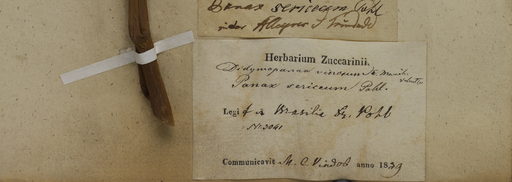 Panax sericeum Pohl
Herbarium Zuccarinii.
Didymopanax vinosum
Panax sericeum Pohl.
Legit in Brasilia Dr. Pohl
No. 3041
Communicavit M. C. Vindob anno 1839